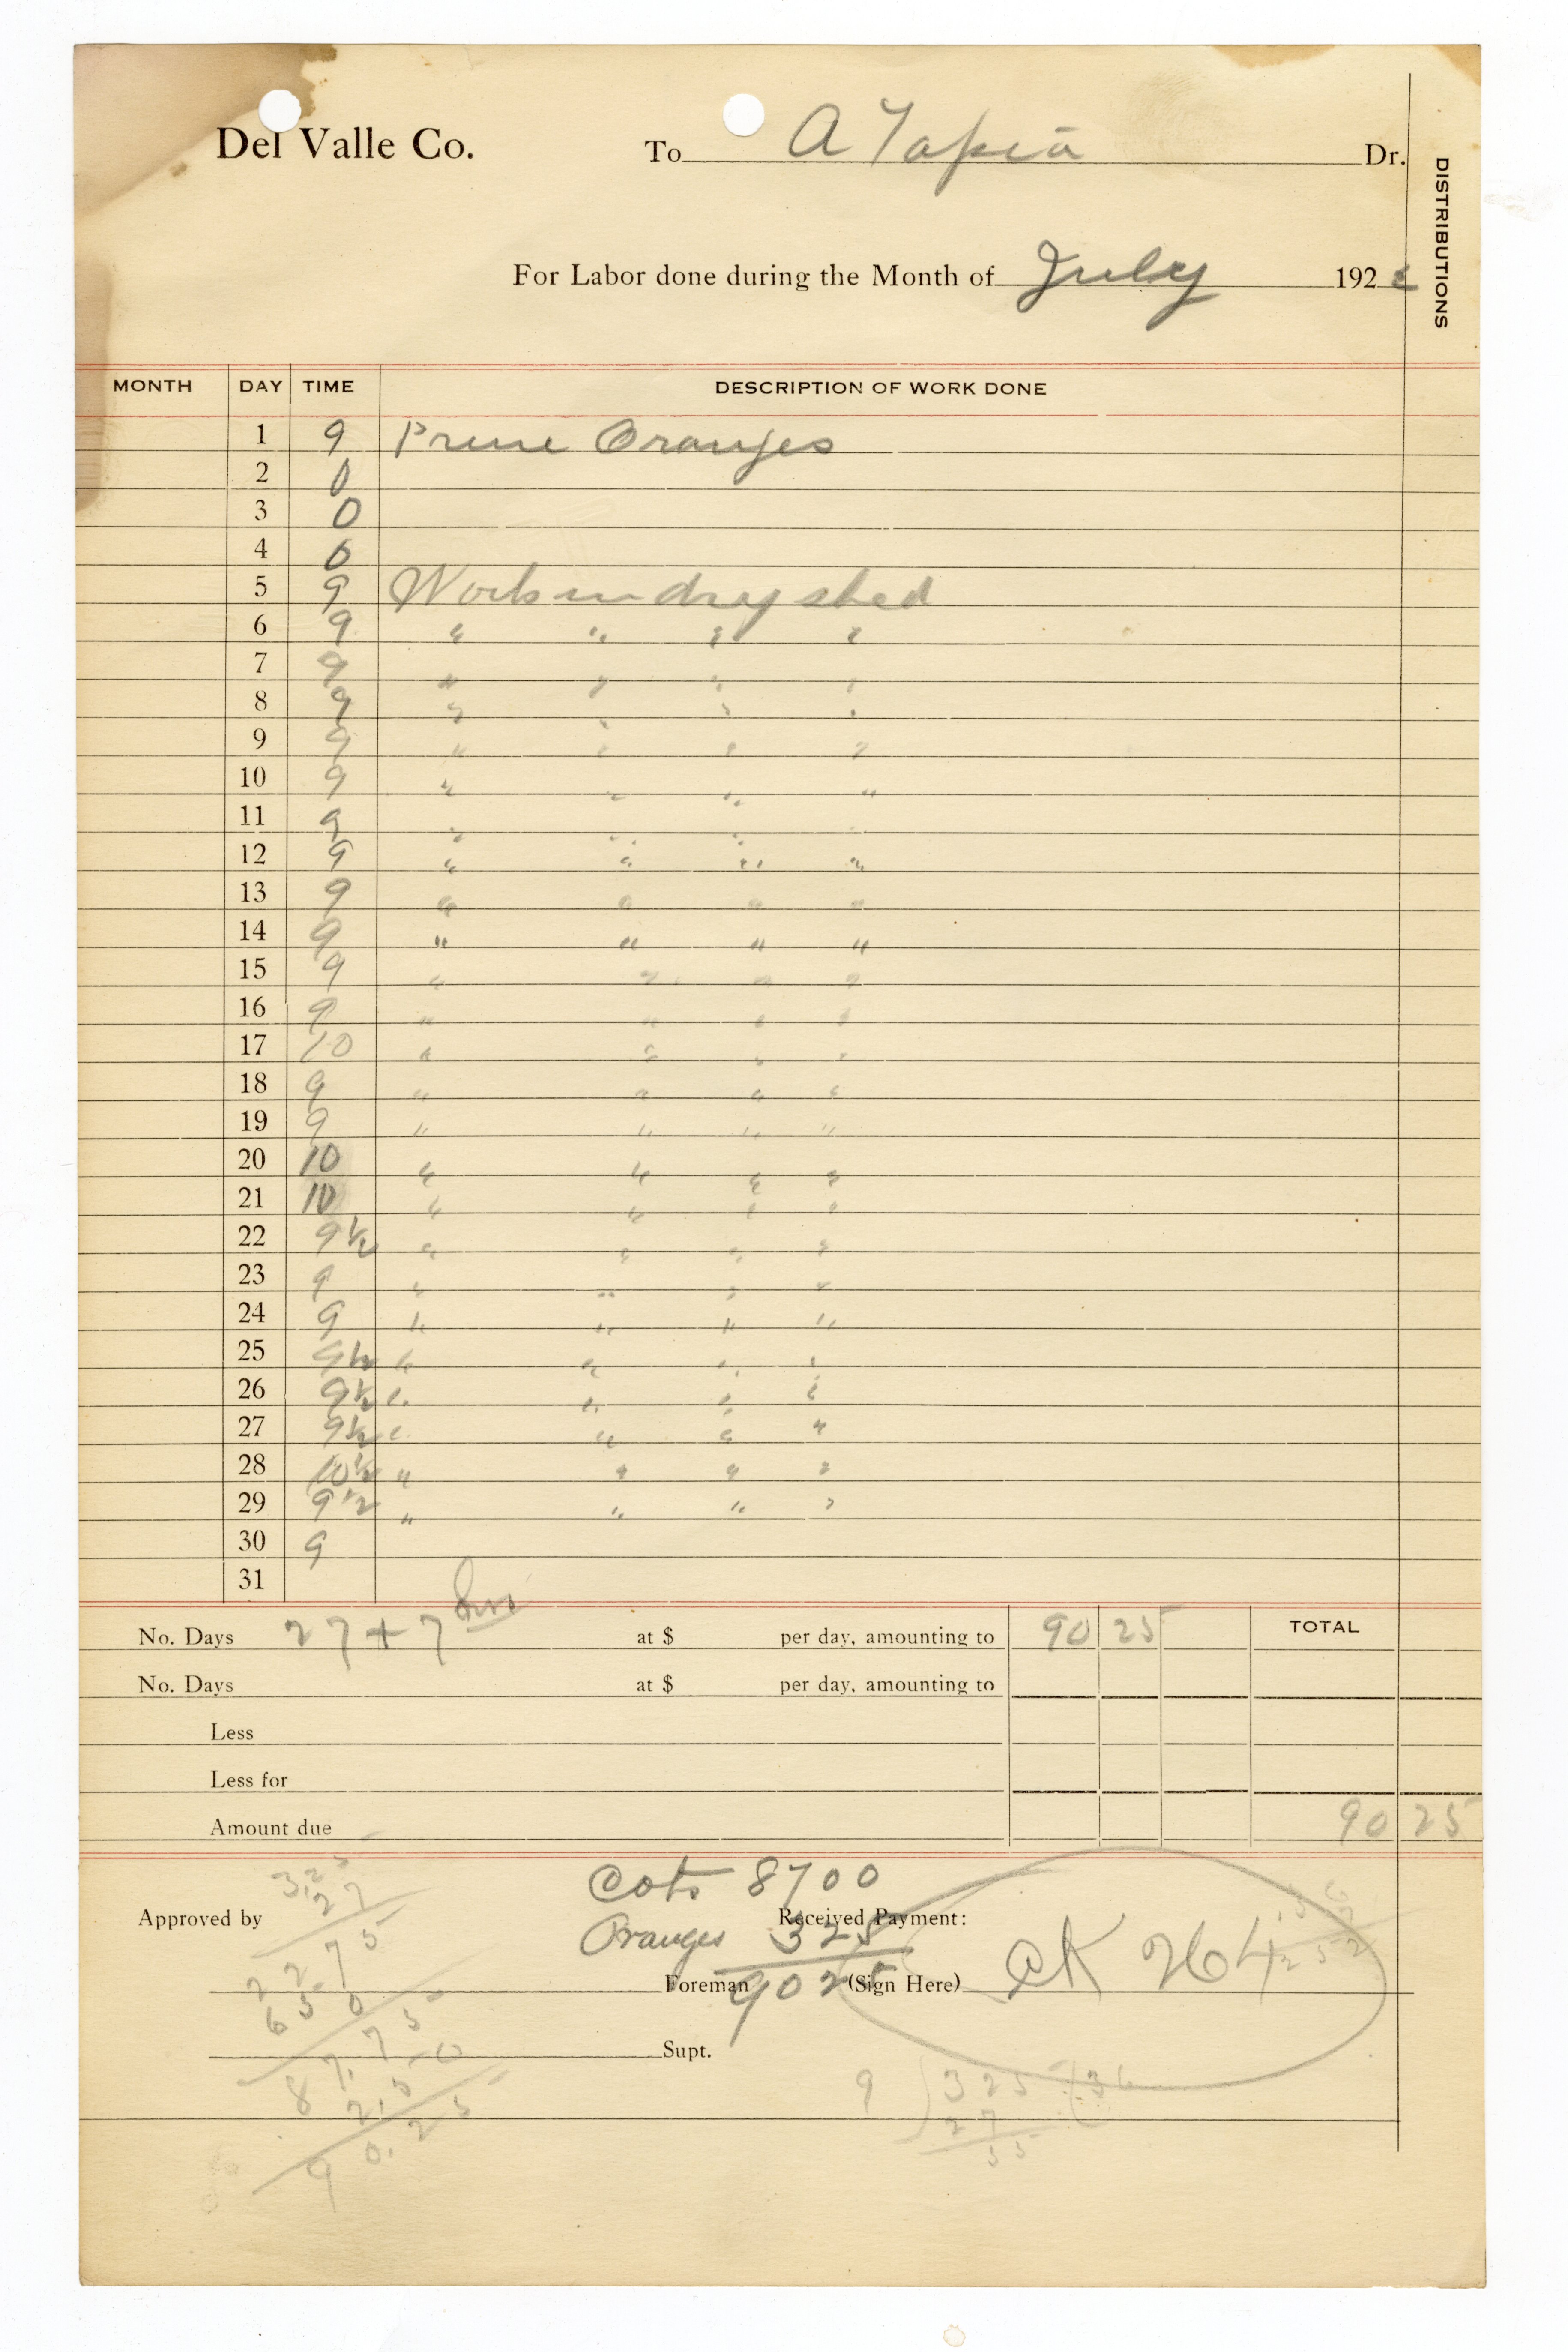 Del Valle Co. To A Tapia Dr.
DISTRIBUTIONS
For Labor done during the Month of July 192
MONTH DAY TIME DESCRIPTION OF WORK DONE
1 9 Prune Oranges
2 0
3 0
4 0
5 9 Work in dry shed
6 9 " " " "
7 9 " " " "
8 9 " " " "
9 9 " " " "
10 9 " " " "
11 9 " " " "
12 9 " " " "
13 9 " " " "
14 9 " " " "
15 9 " " " "
16 9 " " " "
17 10 " " " "
18 9 " " " "
19 9 " " " "
20 10 " " " "
21 10 " " " "
22 9 1/2 " " " "
23 9 " " " "
24 9 " " " "
25 9 1/2 " " " "
26 9 1/2 " " " "
27 9 1/2 " " " "
28 10 1/2 " " " "
29 9 1/2 " " " "
30 9
31
No. Days 27 + 7 hrs at $ per day, amounting to 90 25 TOTAL
No. Days at $ per day, amounting to
Less
Less for
Amount due 90 25
Cots 8700
Approved by Received Payment:
Oranges 325
Foreman 9025 (Sign Here) CK 264
Supt.
3.25
27
2275
650
87.75
2.50
90.25
9 ) 325 ( 36
27
55